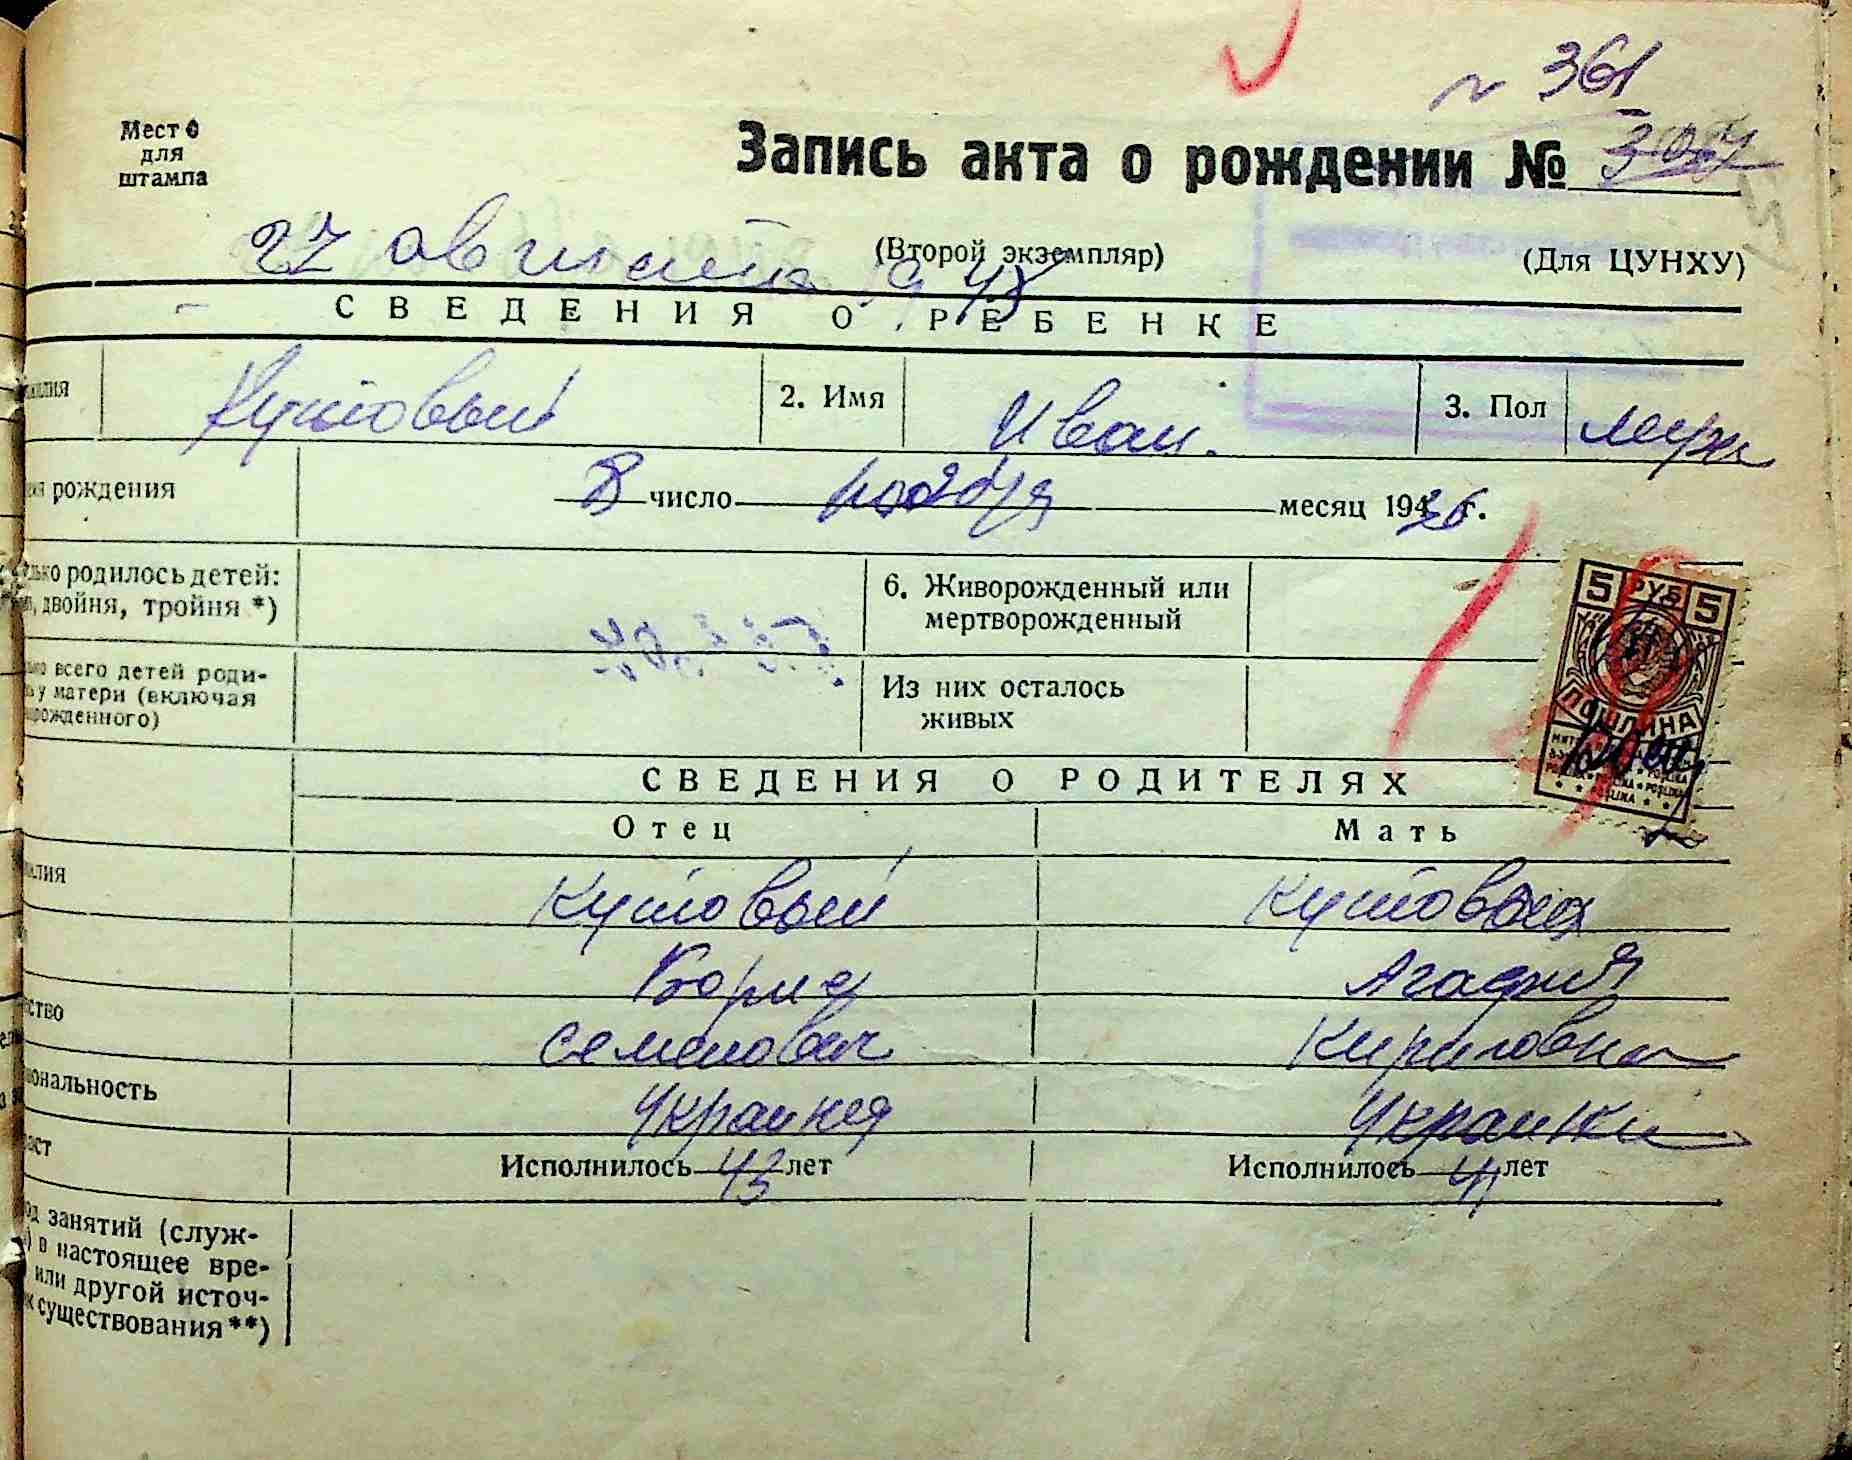 № 361
Место
для
штампа
Запись акта о рождении №
27 августа 1948
(Второй экземпляр)
(Для ЦУНХУ)
СВЕДЕНИЯ О РЕБЕНКЕ
милия Кутовый 2. Имя Иван. 3. Пол муж
мя рождения 8 число ноября месяц 1936 г.
лько родилось детей:
двойня, тройня *)
6. Живорожденный или
мертворожденный
ько всего детей роди-
у матери (включая
рожденного)
Из них осталось
живых
5 РУБ 5
ПОШЛИНА
СВЕДЕНИЯ О РОДИТЕЛЯХ
Отец Мать
милия Кутовый Кутовая
Борис Агафия
ство Семенович Кириловна
иональность Украинец Украинка
раст Исполнилось 43 лет Исполнилось 41 лет
од занятий (служ-
) в настоящее вре-
или другой источ-
к существования**)